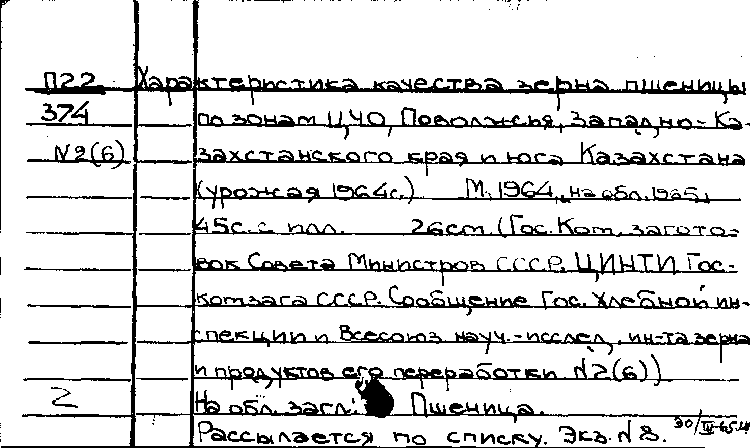 П22 Характеристика качества зерна пшеницы
374 по зонам ЦЧО, Поволжья, Западно-Ка-
N2(6) захстанского края и юга Казахстана
(урожая 1964г.) М, 1964, на обл. 1965,
45с. с илл. 26см. (Гос. Ком. загото-
вок Совета Министров СССР. ЦИНТИ Гос-
комзага СССР. Сообщение Гос. Хлебной ин-
спекции и Всесоюз науч.-исслед. ин-та зерна
и продуктов его переработки N2(6))
2 На обл. загл: Пшеница.
Рассылается по списку. Экз. N 8. 30/IV-65